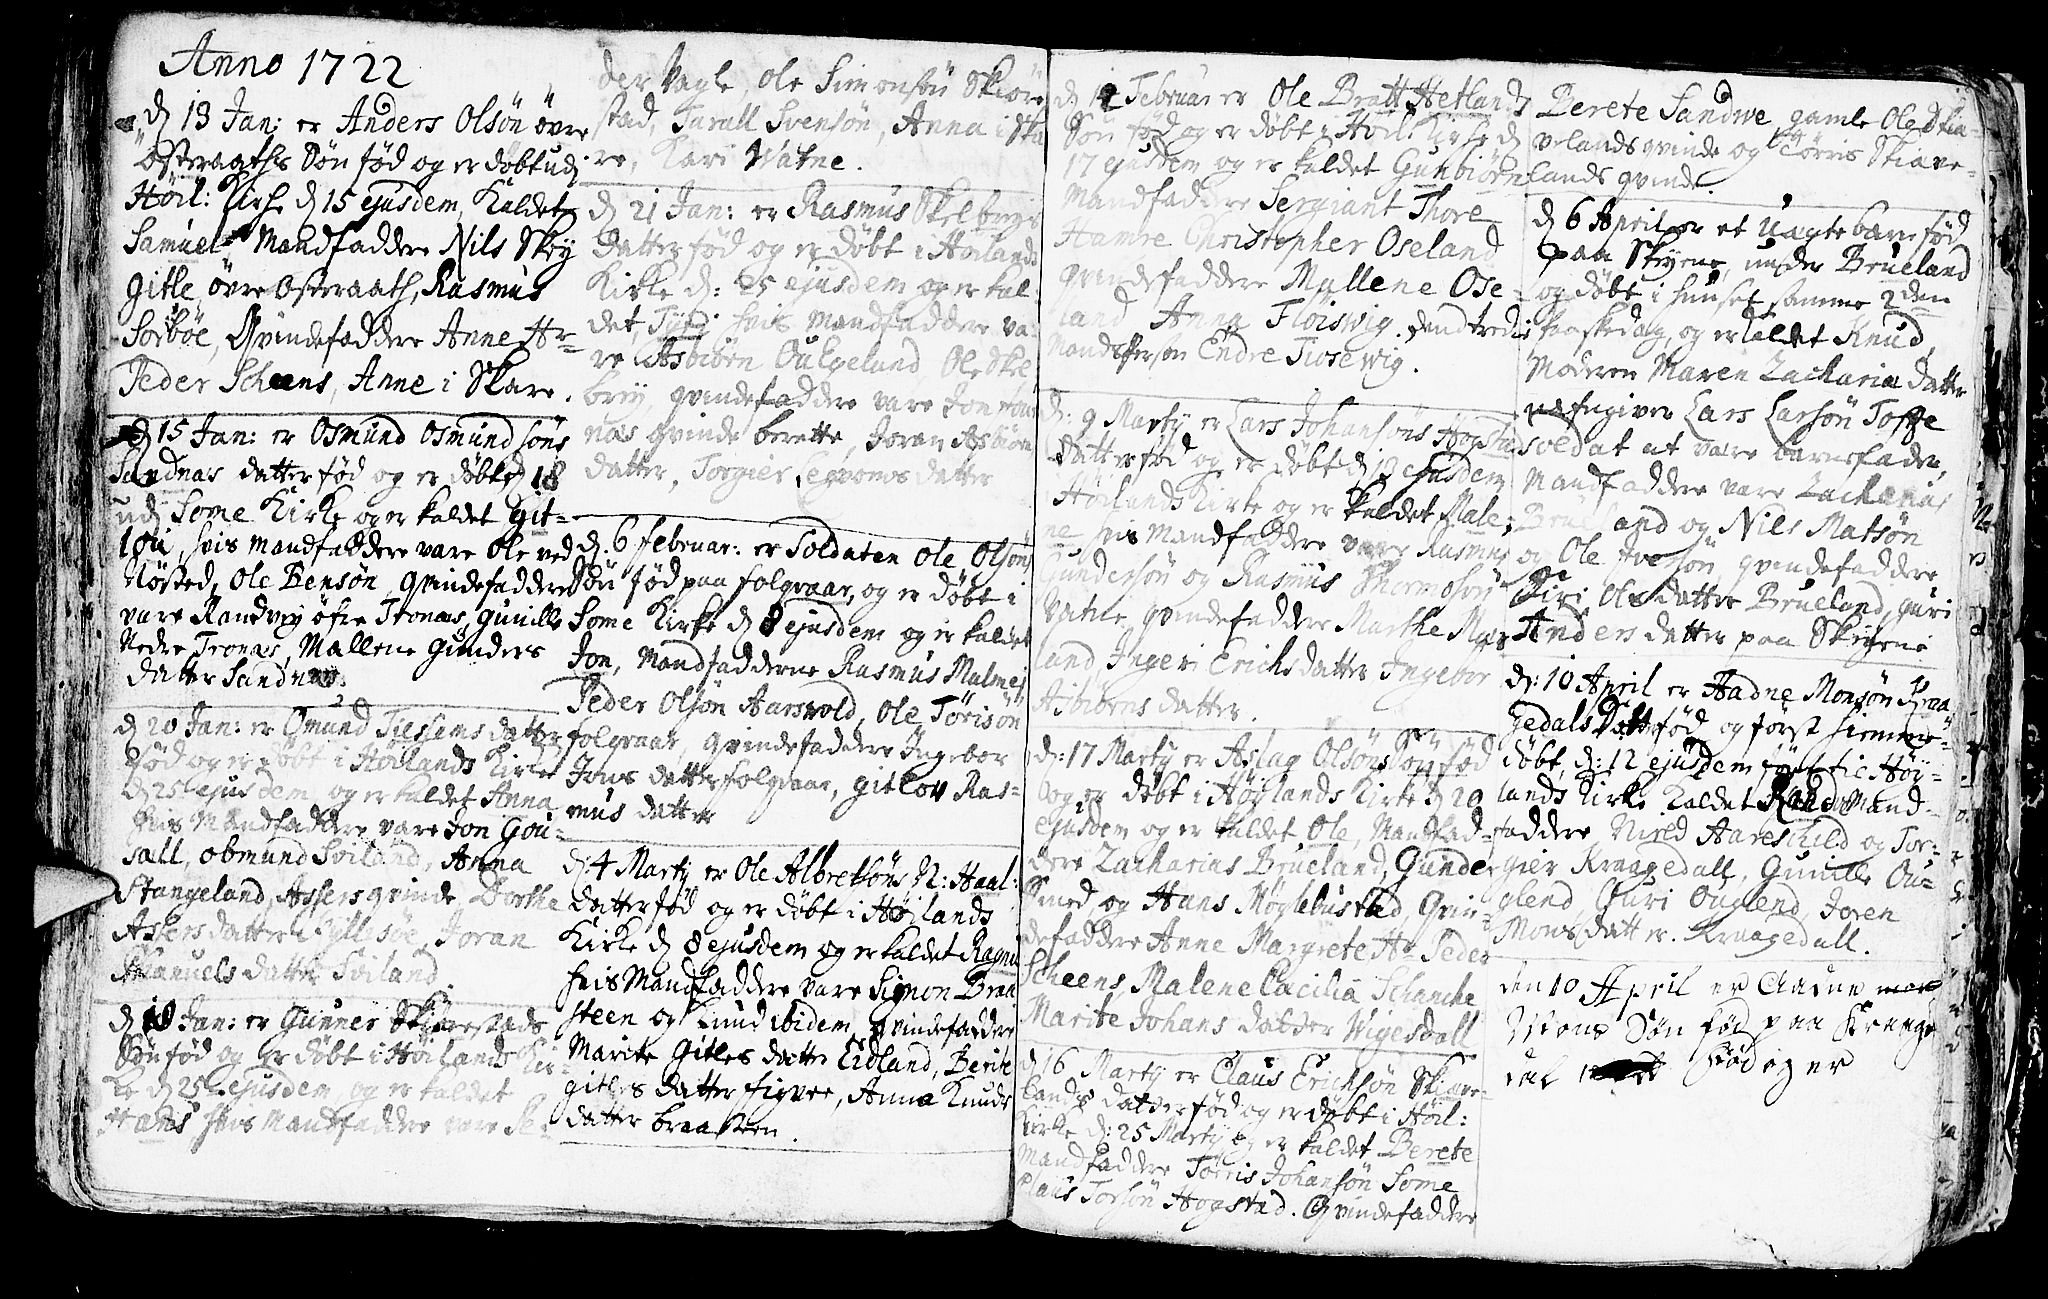 Anno 1722
d 13 Jan: er Anders Olsön övre
Osteraaths Sön fød og er døbt udj
Höil: Kirke d 15 ejusdem, Kaldet
Samuel, Mandfaddre Nils Skey
Gitle övre Osteraath, Rasmus
Sörböe, Qvindefaddre Anne Hr
Peder Scheens, Anne i Skare.
d 15 Jan: er Osmund Osmundsöns
Sandnæs datter fød og er døbt d 18
udj Some Kirke og er kaldet Git-
lou, hvis mandfaddre vare Ole ved
Nösted, Ole Bensön, qvindefaddre
vare Randvey öfre Tronæs, Gunille
Nedre Tronæs, Mallene Gunders
datter Sandnæs.
d 20 Jan: er Omund Tiessens datter
fød og er døbt i Höilands Kirke
d 25 ejusdem og er kaldet Anna
hvis Mandfaddre vare Jon Gou-
sall, obmund Sviland, Anna
Stangeland, Assers qvinde, Dorthe
Assers datter Kyllesöe, Joran
Samuels datter Sviland.
d 18 Jan: er Gunner Skiærestads
Sön fød og er døbt i Höilands Kir-
ke d 25 ejusdem og er kaldet
Hans hvis Mandfaddre vare Pe-
der Vagle, Ole Simonsön Skiöre
stad, Tarall Svensön, Anna i Ska
re, Kari Watne.
d 21 Jan: er Rasmus Skelbreys
datter fød og er døbt i Höilands
Kirke d: 25 ejusdem og er kal-
det, hvis mandfaddre va-
re Asbiörn Oulgeland, Ole Skel
brey, qvindefaddre vare Jon
næs qvinde berette, Joran Asbiön
datter, Torgier datter
d: 6 februar: er Soldaten Ole Olsön
Sön fød paa folgvaar, og er døbt i
Some Kirke d 8 ejusdem og er kaldet
Jon, Mandfadderne Rasmus Malmei
Peder Olsön Aarsvold, Ole Törisön
folgvaar, qvindefaddre Ingebor
Jons datter folgvaar, Gitlov Ras-
mus datter
d: 4 Marty er Ole Albretsöns N: Haal:
datter fød og er døbt i Höilands
Kirke d 8 ejusdem og er kaldet Ragni
hvis Mandfaddre vare Signon Braa
steen og Knud ibidem, qvindefaddre
Marite Gitles datter Eidland, Berite
gitles datter figvee, Anna Knuds
datter braasteen.
d 12 Februar er Ole Bratt Hetlands
Sön fød og er døbt i Höil: Kirke d
17 ejusdem og er kaldet Gunbiörn
Mandfaddre Sergiant Thore
Hamre Christopher Oseland
qvindefaddre Mallene Ose-
land Anna Floiswig. dend tredie
Mandsperson Endre Tiosewig.
d: 9 Marty er Lars Johansöns Hogstad
datter fød og er døbt d 13 ejusdem
i Höilands Kirke og er kaldet Male-
ne hvis Mandfaddre vare Rasmus
Gundersön og Rasmus Thormosön
Vatne, qvindefaddre Marthe
land, Ingeri Erichsdatter Ingebor
Asbiörns datter.
d: 17 Marty er Aslag Olsöns Sön fød
og er døbt i Höylands Kirke d 20
ejusdem og er kaldet Ole, Mandfad-
dere Zacharias Brueland, Gunder
Smed, og Hans Möglebustad, Qvin-
defaddre Anne Margrete Hr Peder
Scheens, Malene Cæcilia Schanche
Marite Johans datter Wigesdall
d 16 Marty er Claus Erichsön Skiave-
lands datter fød og er døbt i Höil:
Kirke d: 25 Marty og er kaldet Berete
Mandfaddre Törris Johansön Some
Claus Torsön Hogstad. Qvindefaddre
Berete Sandwe, gamle Ole Skia-
velands qvinde og Törris Skiave-
lands qvinde.
d 6 April er et Uægte barn fød
paa Skeyene, under Brueland
og døbt i huuset samme 2den
paaskedag, og er kaldet Knud,
Moderen Maren Zacharia datter
udsugiver Lars Larsön Toffe
soldat at være barnefader,
Mandfaddre vare Zacharias
Brueland og Nils Matsön
og Ole Iversön qvindefaddre
Siri Ols datter Brueland, Guri
Anders datter paa Skeyene
d: 10 April er Aadne Monsön Kraa
gedals Datt fød og först hiemme-
döbt, d: 12 ejusdem fört til Höy-
lands Kirke Kaldet Mand-
faddre Nield Aareskield og Tor-
gier Kraagedall, Gunille Ou-
glend Guri Ouglend, Joren
Mons datter. Kraagedall.
den 10 April er Aadne
Mons Sön fød paa Kraage
dal fød og er